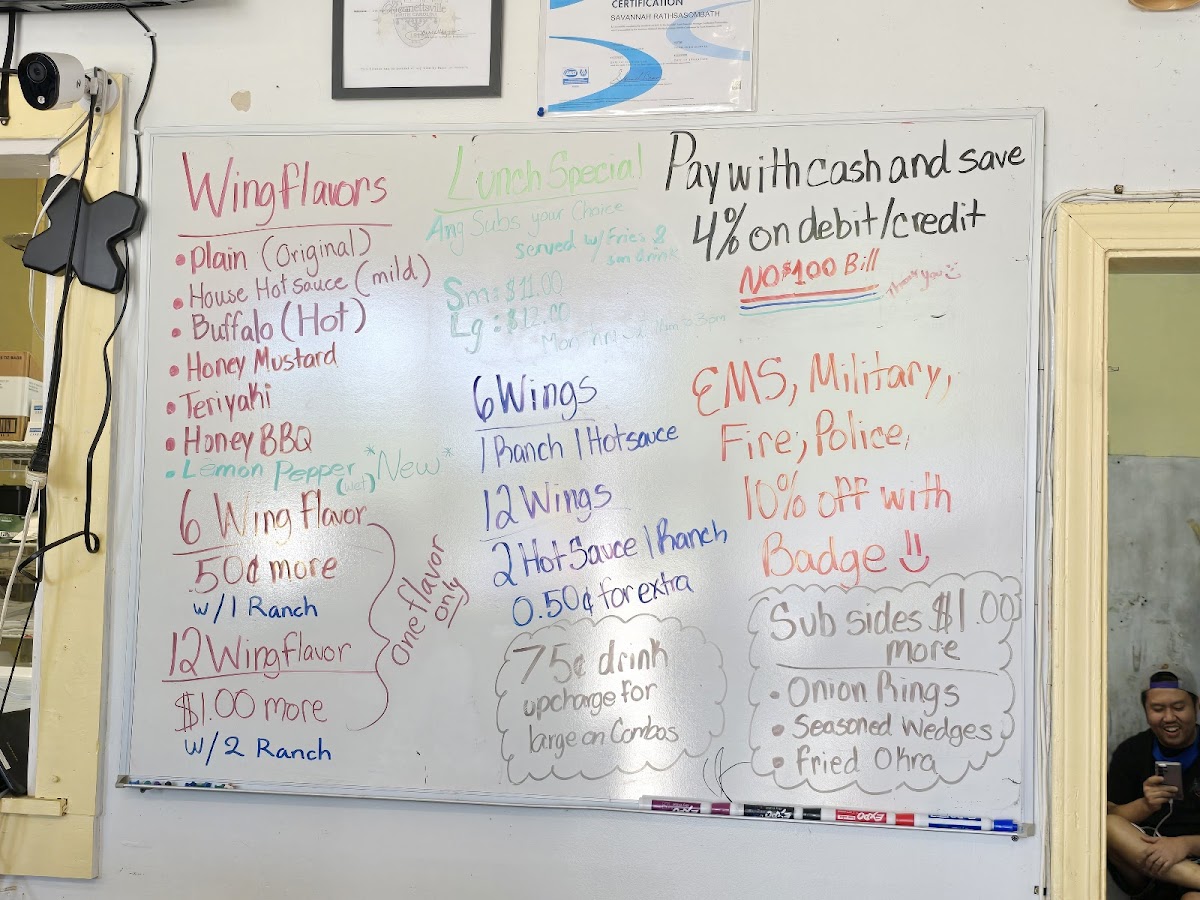 CERTIFICATION
SAVANNAH RATHSASOMBATH
Wing flavors
• Plain (Original)
• House Hot sauce (mild)
• Buffalo (Hot)
• Honey Mustard
• Teriyaki
• Honey BBQ
• Lemon Pepper (wet) *New*
6 Wing flavor
.50¢ more
w/1 Ranch
12 Wing flavor
$1.00 more
w/2 Ranch
One flavor
only
Lunch Special
Any Subs your Choice
served w/ Fries &
sm drink
Sm: $11.00
Lg: $12.00
Mon
6 Wings
1 Ranch 1 Hot sauce
12 Wings
2 Hot Sauce 1 Ranch
0.50¢ for extra
75¢ drink
upcharge for
large on Combos
Pay with cash and save
4% on debit/credit
NO $100 Bill
Thank you
EMS, Military,
Fire, Police,
10% off with
Badge
Sub sides $1.00
more
• Onion Rings
• Seasoned Wedges
• Fried Okra
EXPO